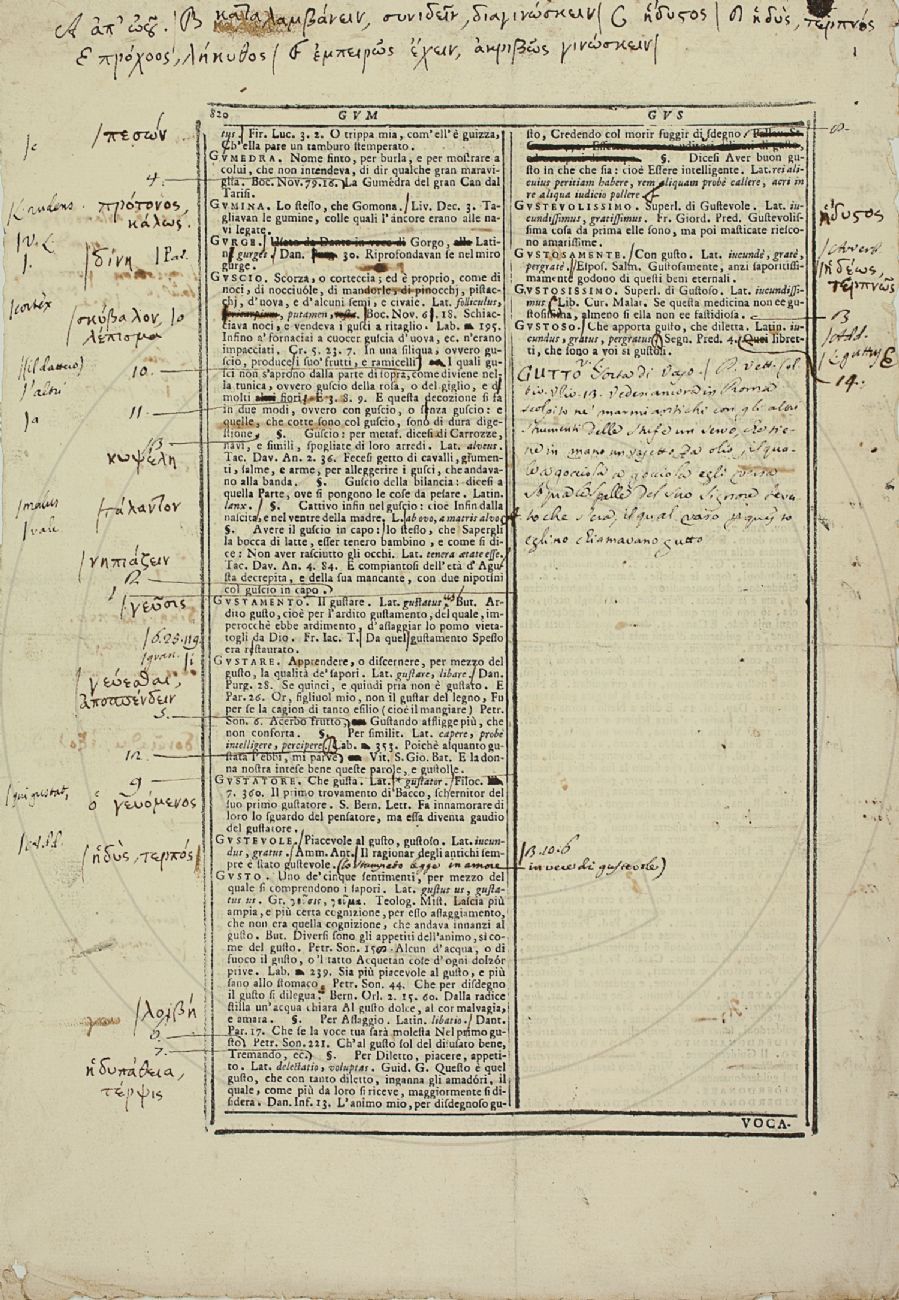 A ἀπ' ὠοῦ. / B καταλαμβάνειν, συνιδεῖν, διαγινώσκειν / C ἥδυσος / D ἡδὺς, τερπνός
E πρόχοος, λήκυθος / F ἐμπείρως ἔχειν, ἀκριβῶς γινώσκειν /
820 GVM
tus. Fir. Luc. 3. 2. O trippa mia, com'ell'è guizza,
Ch'ella pare un tamburo stemperato.
GVMEDRA. Nome finto, per burla, e per mostrare a
colui, che non intendeva, di dir qualche gran maravi-
glia. Boc. Nov. 79. 16. La Gumèdra del gran Can dal
Tarisi.
GVMINA. Lo stesso, che Gomona. Liv. Dec. 3. Ta-
gliavan le gumine, colle quali l'áncore erano alle na-
vi legate.
GVRGE. Usato da Dante in vece di Gorgo, alla Lati-
n gurges. Dan. 30. Riprofondavan se nel miro
gurge.
GVSCIO. Scorza, o corteccia; ed è proprio, come di
noci, di nocciuòle, di mandorle, di pinocchj, pistac-
chj, d'uova, e d'alcuni semi, e civaie. Lat. folliculus,
putamen, Boc. Nov. 6. 18. Schiac-
ciava noci, e vendeva i gusci a ritaglio. Lab. 195.
Infino a' fornaciai a cuocer guscia d'uova, ec. n'erano
impacciati. Cr. 5. 23. 7. In una síliqua, ovvero gu-
scio, produce li suo' frutti, e ramicelli I quali gu-
sci non s'aprono dalla parte di sopra, come diviene nel-
la tunica, ovvero guscio della rosa, o del giglio, e di
molti fiori. E 3. 8. 9. E questa decozione si fa
in due modi, ovvero con guscio, o senza guscio: e
quelle, che cotte sono col guscio, sono di dura dige-
stione. §. Guscio: per metaf. dicesi di Carrozze,
navi, e simili, spogliate di loro arredi. Lat. alveus.
Tac. Dav. An. 2. 36. Fecesi getto di cavalli, giumen-
ti, salme, e arme, per alleggerire i gusci, che andava-
no alla banda. §. Guscio della bilancia: dicesi a
quella Parte, ove si pongono le cose da pesare. Latin.
lanx. §. Cattivo infin nel guscio: cioè Infin dalla
nascita, e nel ventre della madre. L. ab ovo, a matris alvo
§. Avere il guscio in capo: lo stesso, che Sapergli
la bocca di latte, esser tenero bambino, e come si di-
ce: Non aver rasciutto gli occhi. Lat. tenera aetate esse.
Tac. Dav. An. 4. 84. E compiantosi dell'età d'Agu-
sta decrepita, e della sua mancante, con due nipotini
col guscio in capo.
GVSTAMENTO. Il gustare. Lat. gustatus. But. Ar-
dito gusto, cioè per l'ardito gustamento, del quale, im-
perocchè ebbe ardimento, d'assaggiar lo pomo vieta-
togli da Dio. Fr. Iac. T. Da quel gustamento Spesso
era restaurato.
GVSTARE. Apprendere, o discernere, per mezzo del
gusto, la qualità de' sapori. Lat. gustare, libare. Dan.
Purg. 28. Se quinci, e quindi pria non è gustato. E
Par. 26. Or, figliuol mio, non il gustar del legno, Fu
per se la cagion di tanto esilio (cioè il mangiare) Petr.
Son. 6. Acerbo frutto, Gustando affligge più, che
non conforta. §. Per similit. Lat. capere, probè
intelligere, percipere. Lab. 353. Poichè alquanto gu-
stata l'ebbi, mi parve Vit. S. Gio. Bat. E la don-
na nostra intese bene queste parole, e gustolle.
GVSTATORE. Che gusta. Lat. gustator. Filoc.
7. 360. Il primo trovamento di Bacco, schernitor del
suo primo gustatore. S. Bern. Lett. Fa innamorare di
loro lo sguardo del pensatore, ma essa diventa gaudio
del gustatore.
GVSTEVOLE. Piacevole al gusto, gustoso. Lat. iucun-
dus, gratus. Amm. Ant. Il ragionar degli antichi sem-
pre è stato gustevole.
GVSTO. Uno de' cinque sentimenti, per mezzo del
quale si comprendono i sapori. Lat. gustus us, gusta-
tus us. Gr. γεῦσις, γεῦμα. Teolog. Mist. Lascia più
ampia, e più certa cognizione, per esso assaggiamento,
che non era quella cognizione, che andava innanzi al
gusto. But. Diversi sono gli appetiti dell'animo, sì co-
me del gusto. Petr. Son. Alcun d'acqua, o di
fuoco il gusto, o 'l tatto Acquetan cose d'ogni dolzór
prive. Lab. 239. Sia più piacevole al gusto, e più
sano allo stomaco. Petr. Son. 44. Che per disdegno
il gusto si dilegua. Bern. Orl. 2. 15. 60. Dalla radice
stilla un'acqua chiara Al gusto dolce, al cor malvagia,
e amara. §. Per Assaggio. Latin. libatio. Dant.
Par. 17. Che se la voce tua sarà molesta Nel primo gu-
sto, Petr. Son. 221. Ch'al gusto sol del disusato bene,
Tremando, ec. §. Per Diletto, piacere, appeti-
to. Lat. delectatio, voluptas. Guid. G. Questo è quel
gusto, che con tanto diletto, inganna gli amadóri, il
quale, come più da loro si riceve, maggiormente si di-
sidera. Dan. Inf. 13. L'animo mio, per disdegnoso gu-
GVS
sto, Credendo col morir fuggir disdegno
§. Dicesi Aver buon gu-
sto in che che sia: cioè Essere intelligente. Lat. rei ali-
cuius peritiam habere, rem aliquam probè callere, acri in
re aliqua iudicio pollere
GVSTEVOLISSIMO. Superl. di Gustevole. Lat. iu-
cundissimus, gratissimus. Fr. Giord. Pred. Gustevolis-
sima cosa da prima elle sono, ma poi masticate riesco-
no amarissime.
GVSTOSAMENTE. Con gusto. Lat. iucundè, gratè,
pergratè. Espos. Salm. Gustosamente, anzi saporitissi-
mamente godono di questi beni eternali.
GVSTOSISSIMO. Superl. di Gustoso. Lat. iucundissi-
mus. Lib. Cur. Malat. Se questa medicina non ee gu-
stosissima, almeno si ella non ee fastidiosa.
GVSTOSO. Che apporta gusto, che diletta. Latin. iu-
cundus, gratus, pergratus. Segn. Pred. 4. Quei libret-
ti, che sono a voi sì gustosi.
GUTTO Sorta di Vaso.
scolpito ne' marmi antichi con gli altri
strumenti delle stufe un servo, che tie-
ne in mano un vasetto da olio, il qua-
le a gocciola a gocciola egli versa
sopra le spalle del suo Signore
eglino chiamavano gutto
VOCA-
πεσών
4.
πρότονος
κάλως.
δίνη
cortex
σκύβαλον,
λέπισμα
10.
11.
13
κωψέλη
τάλαντον
νηπιάζειν
2
γεῦσις
γεύεσθαι,
ἀποσπένδειν
5.
12.
9
qui gustat,
ὁ γευόμενος
ἡδὺς, τερπός
λοιβή
6.
7.
ἡδυπάθεια,
τέρψις
8.
ἥδυσος
ἡδέως,
τερπνῶς
B
guttus E
14.
B. 10. 6
in vece di gustevole)